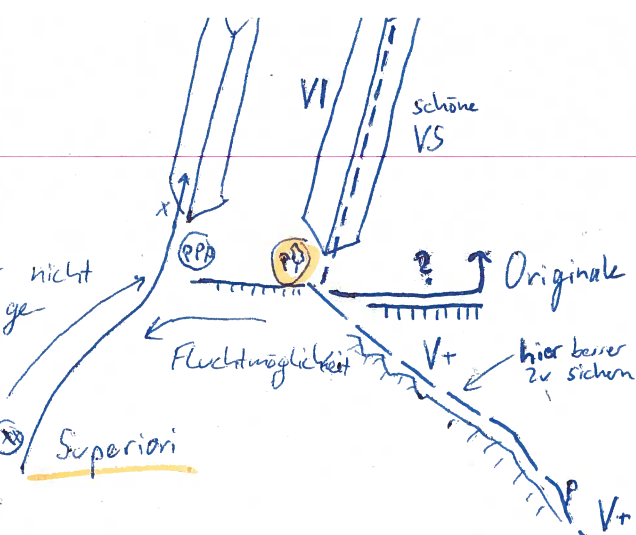 VI
schöne
VS
x
PPP
PP
?
Originale
nicht
ge-
Fluchtmöglichkeit
V+
hier besser
zu sichern
Superiori
P
V+